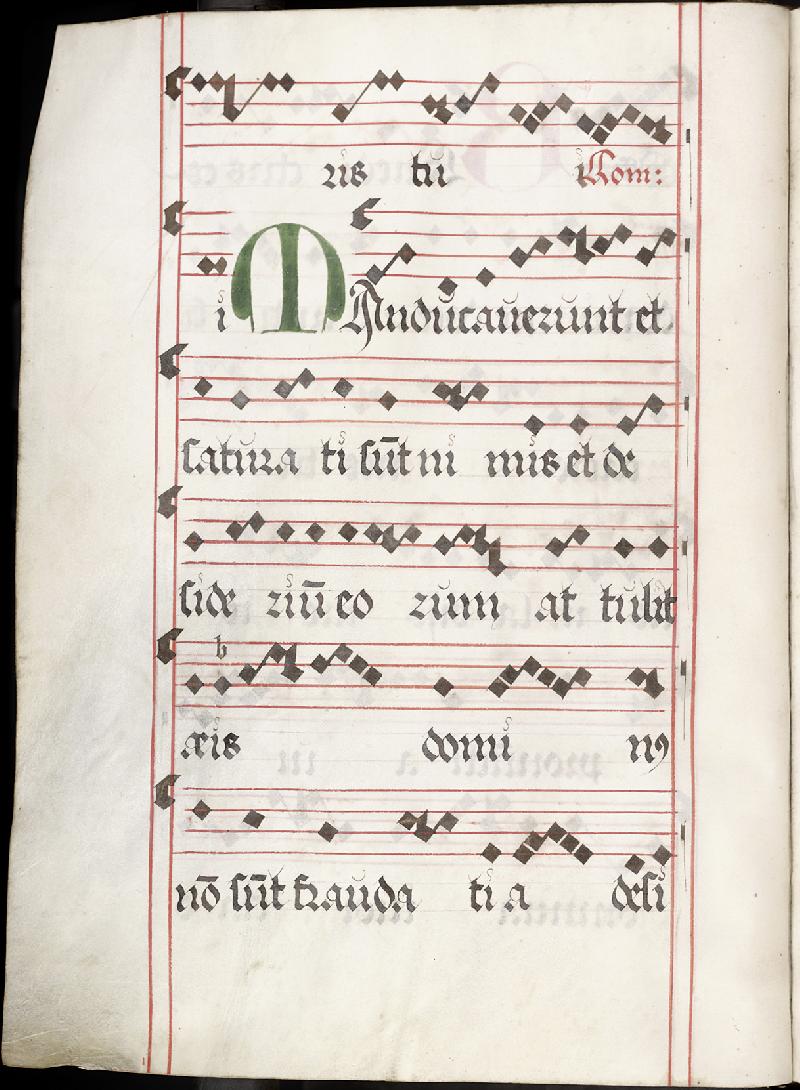 ris tu i Com:
i MAnducauerunt et
satura ti sūt ni mis et de
side riū eo rum at tulit
eis domi nꝰ
nō sūt frauda ti a desi